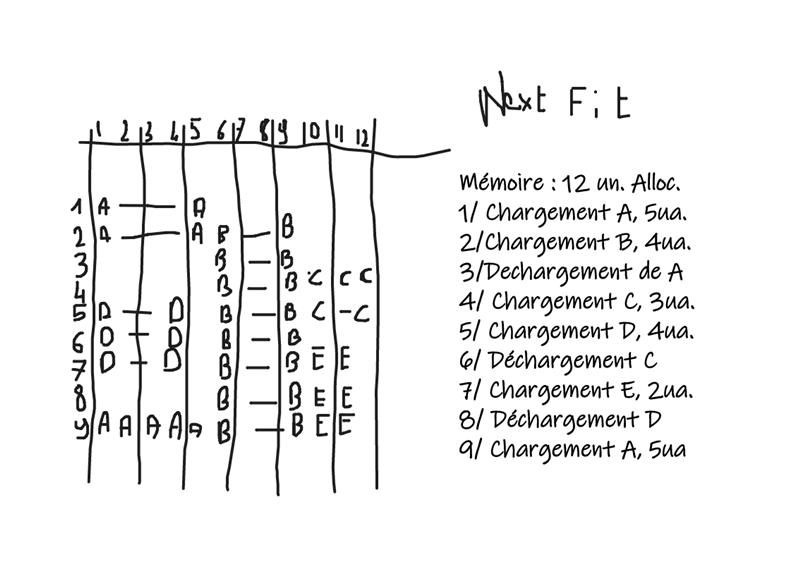 Next Fit
1 2 3 4 5 6 7 8 9 10 11 12
1 A — A
2 A — A B — B
3 B — B
4 B — B C C C
5 D — D B — B C - C
6 D — D B — B
7 D — D B — B E E
8 B — B E E
9 A A A A A B — B E E
Mémoire : 12 un. Alloc.
1/ Chargement A, 5ua.
2/Chargement B, 4ua.
3/Dechargement de A
4/ Chargement C, 3ua.
5/ Chargement D, 4ua.
6/ Déchargement C
7/ Chargement E, 2ua.
8/ Déchargement D
9/ Chargement A, 5ua